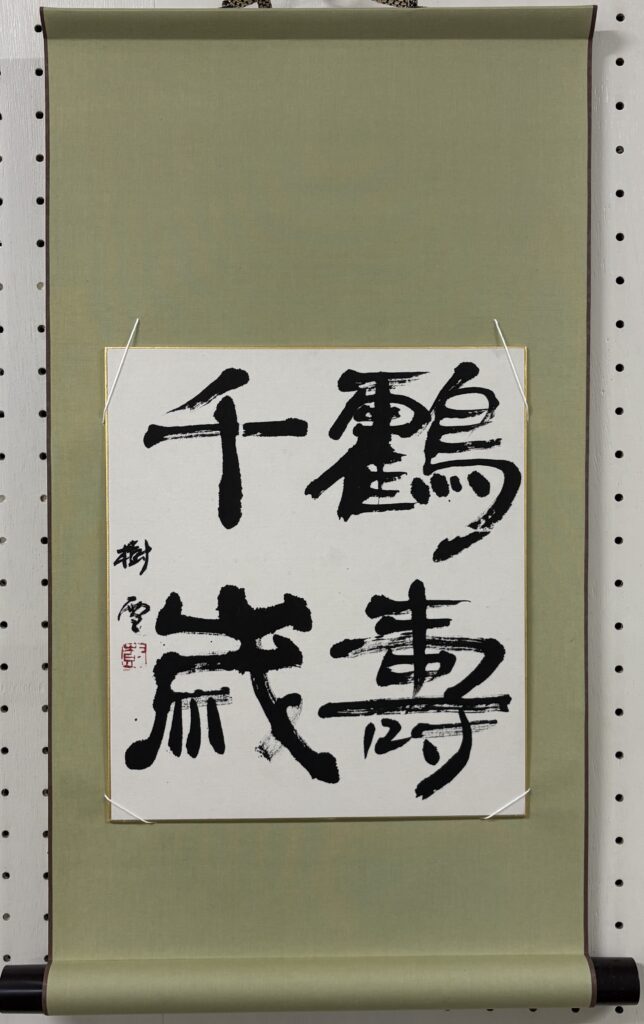 鶴壽
千歳
樹雪